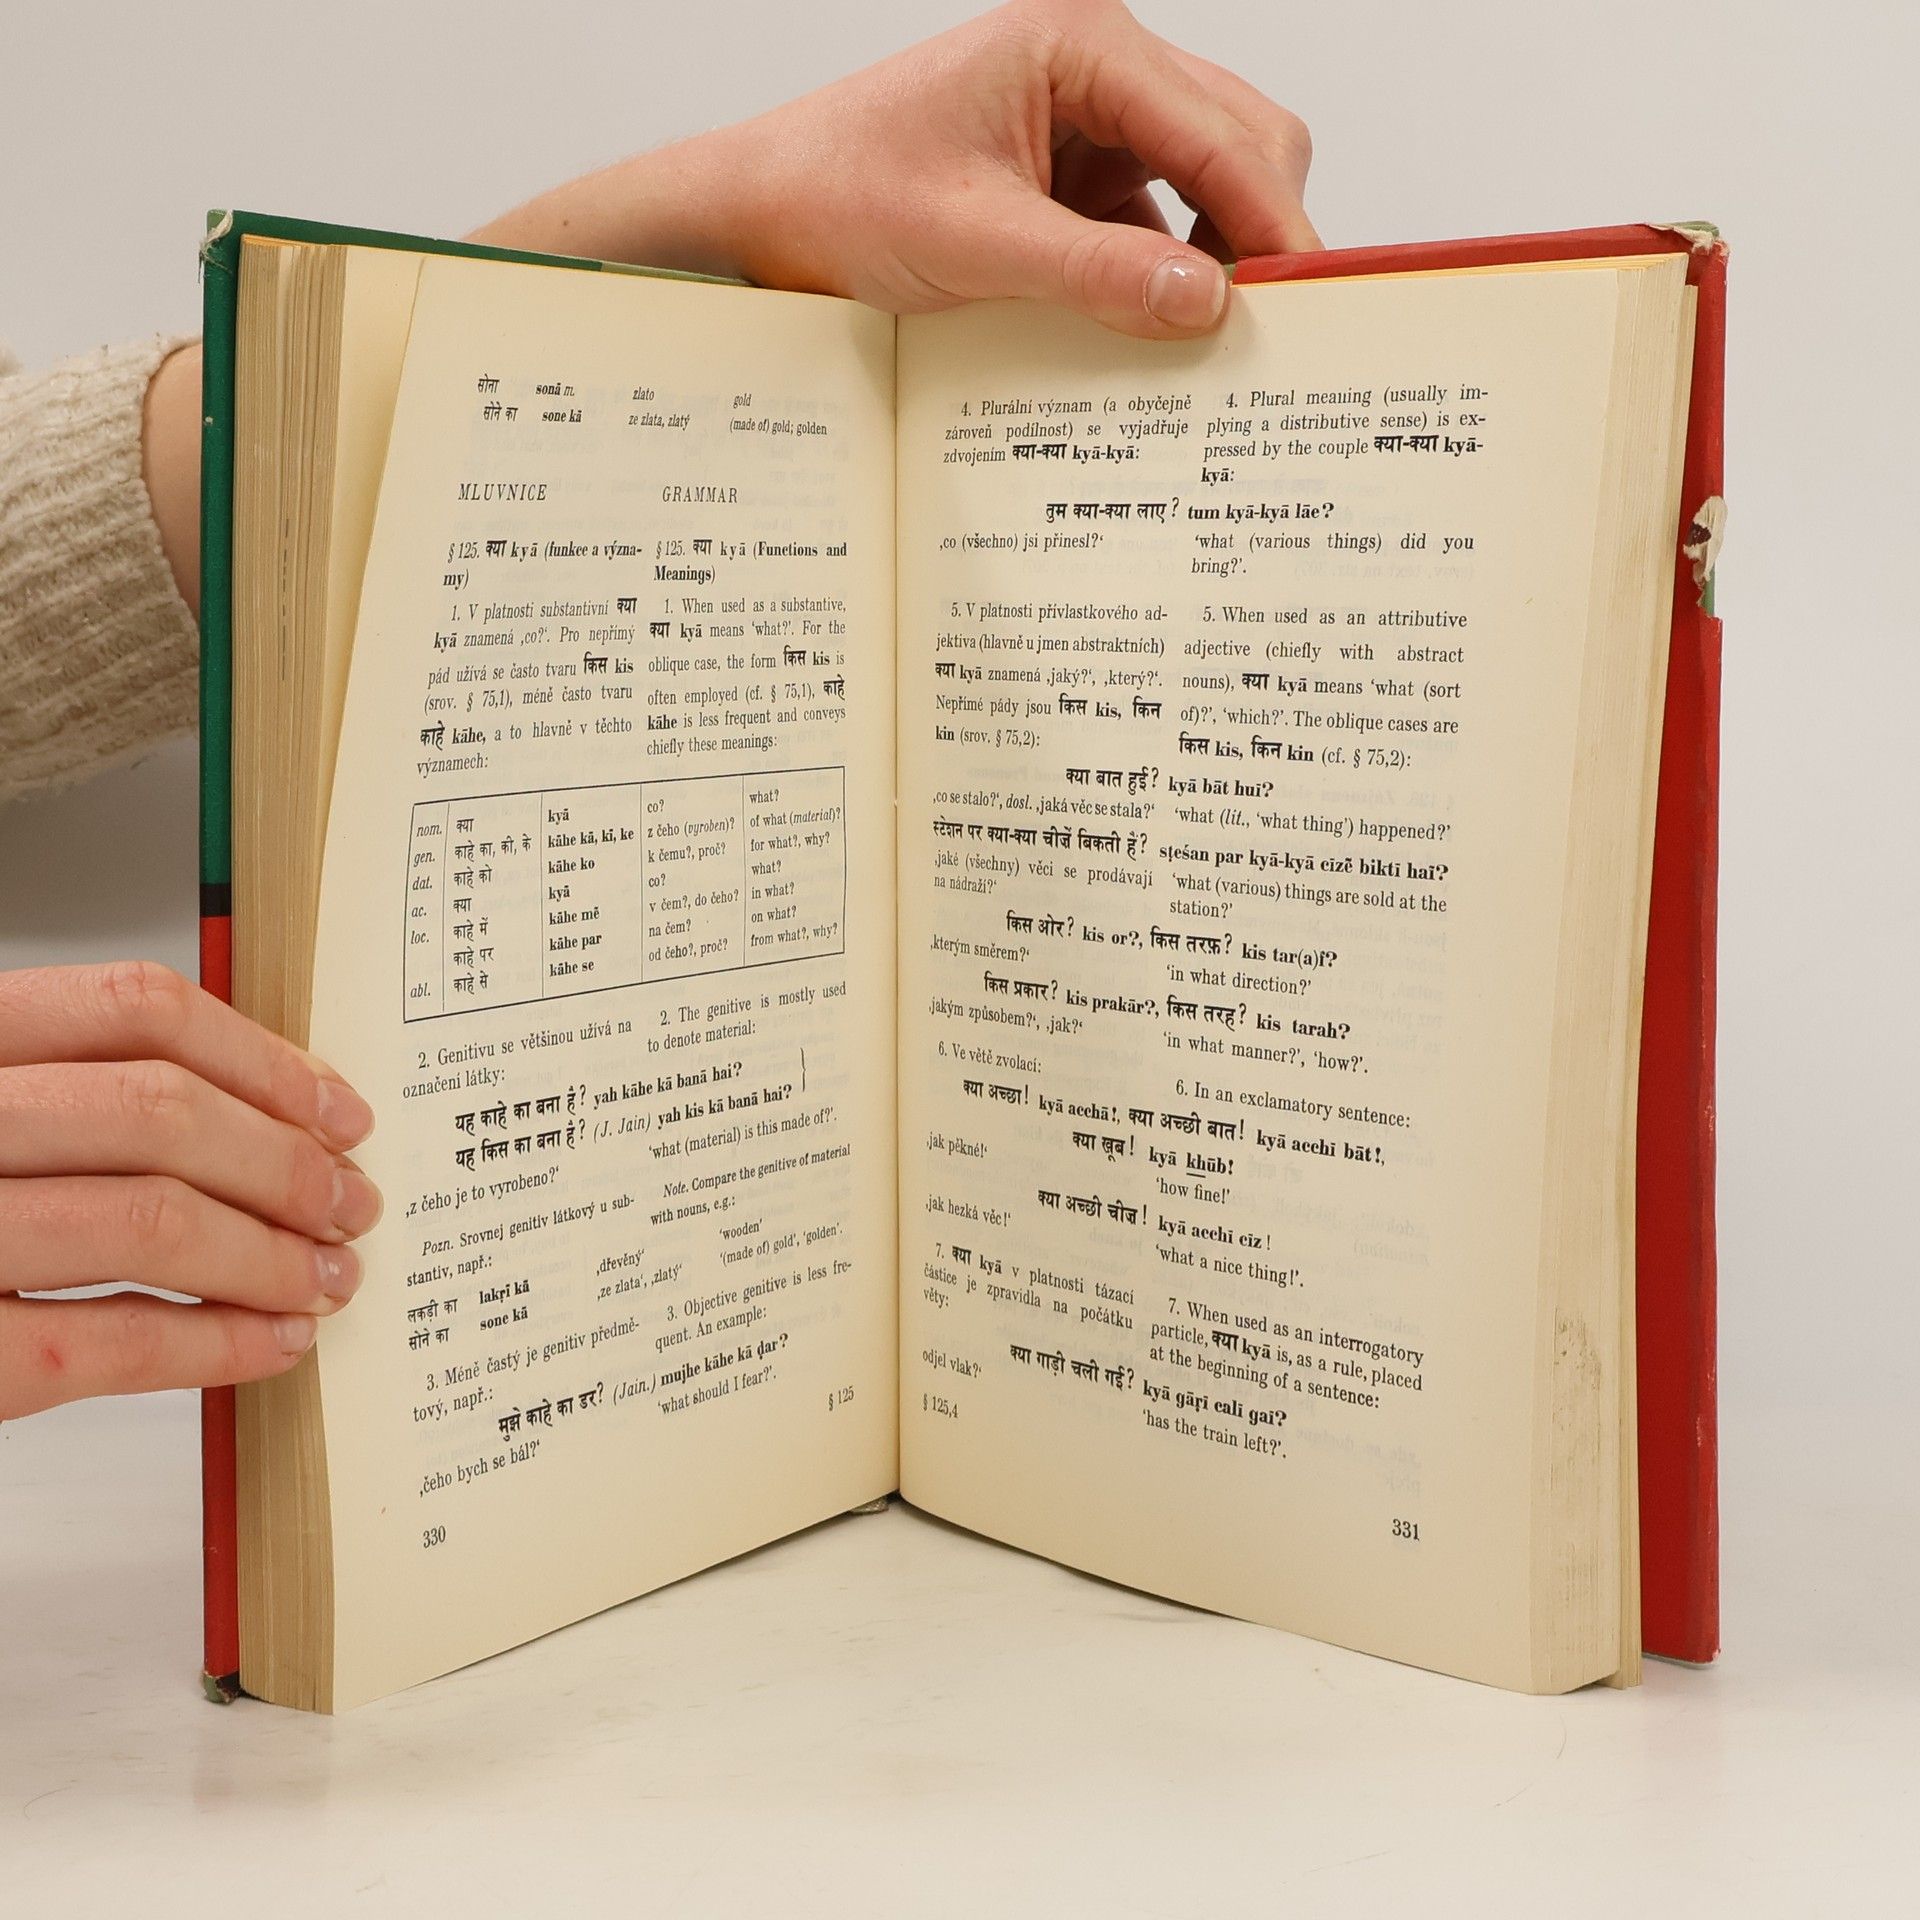 सोना sonā m. zlato gold
सोने का sone kā ze zlata, zlatý (made of) gold; golden
MLUVNICE
§ 125. क्या kyā (funkce a význa-
my)
1. V platnosti substantivní क्या
kyā znamená ‚co?‘. Pro nepřímý
pád užívá se často tvaru किस kis
(srov. § 75,1), méně často tvaru
काहे kāhe, a to hlavně v těchto
významech:
GRAMMAR
§ 125. क्या kyā (Functions and
Meanings)
1. When used as a substantive,
क्या kyā means ‘what?’. For the
oblique case, the form किस kis is
often employed (cf. § 75,1), काहे
kāhe is less frequent and conveys
chiefly these meanings:
nom. क्या kyā co? what?
gen. काहे का, की, के kāhe kā, kī, ke z čeho (vyroben)? of what (material)?
dat. काहे को kāhe ko k čemu?, proč? for what?, why?
ac. क्या kyā co? what?
loc. काहे में kāhe mẽ v čem?, do čeho? in what?
काहे पर kāhe par na čem? on what?
abl. काहे से kāhe se od čeho?, proč? from what?, why?
2. Genitivu se většinou užívá na
označení látky:
2. The genitive is mostly used
to denote material:
यह काहे का बना है? yah kāhe kā banā hai?
यह किस का बना है? (J. Jain) yah kis kā banā hai?
‚z čeho je to vyrobeno?‘ ‘what (material) is this made of?’.
Pozn. Srovnej genitiv látkový u sub-
stantiv, např.:
Note. Compare the genitive of material
with nouns, e.g.:
लकड़ी का lakṛī kā ‚dřevěný‘ ‘wooden’
सोने का sone kā ‚ze zlata‘, ‚zlatý‘ ‘(made of) gold’, ‘golden’.
3. Méně častý je genitiv předmě-
tový, např.:
3. Objective genitive is less fre-
quent. An example:
मुझे काहे का डर? (Jain.) mujhe kāhe kā ḍar?
‚čeho bych se bál?‘ ‘what should I fear?’.
§ 125
330
4. Plurální význam (a obyčejně
zároveň podílnost) se vyjadřuje
zdvojením क्या-क्या kyā-kyā:
4. Plural meaning (usually im-
plying a distributive sense) is ex-
pressed by the couple क्या-क्या kyā-
kyā:
तुम क्या-क्या लाए? tum kyā-kyā lāe?
‚co (všechno) jsi přinesl?‘ ‘what (various things) did you
bring?’.
5. V platnosti přívlastkového ad-
jektiva (hlavně u jmen abstraktních)
क्या kyā znamená ‚jaký?‘, ‚který?‘.
Nepřímé pády jsou किस kis, किन
kin (srov. § 75,2):
5. When used as an attributive
adjective (chiefly with abstract
nouns), क्या kyā means ‘what (sort
of)?’, ‘which?’. The oblique cases are
किस kis, किन kin (cf. § 75,2):
क्या बात हुई? kyā bāt huī?
‚co se stalo?‘, dosl. ‚jaká věc se stala?‘ ‘what (lit., ‘what thing’) happened?’
स्टेशन पर क्या-क्या चीज़ें बिकती हैं? sṭeśan par kyā-kyā cīzẽ biktī haĩ?
‚jaké (všechny) věci se prodávají
na nádraží?‘
‘what (various) things are sold at the
station?’
किस ओर? kis or?, किस तरफ़? kis tar(a)f?
‚kterým směrem?‘ ‘in what direction?’
किस प्रकार? kis prakār?, किस तरह? kis tarah?
‚jakým způsobem?‘, ‚jak?‘ ‘in what manner?’, ‘how?’.
6. Ve větě zvolací: 6. In an exclamatory sentence:
क्या अच्छा! kyā acchā!, क्या अच्छी बात! kyā acchī bāt!,
क्या ख़ूब! kyā khūb!
‚jak pěkné!‘ ‘how fine!’
क्या अच्छी चीज़! kyā acchī cīz!
‚jak hezká věc!‘ ‘what a nice thing!’.
7. क्या kyā v platnosti tázací
částice je zpravidla na počátku
věty:
7. When used as an interrogatory
particle, क्या kyā is, as a rule, placed
at the beginning of a sentence:
क्या गाड़ी चली गई? kyā gāṛī calī gaī?
odjel vlak?‘ ‘has the train left?’.
§ 125,4
331